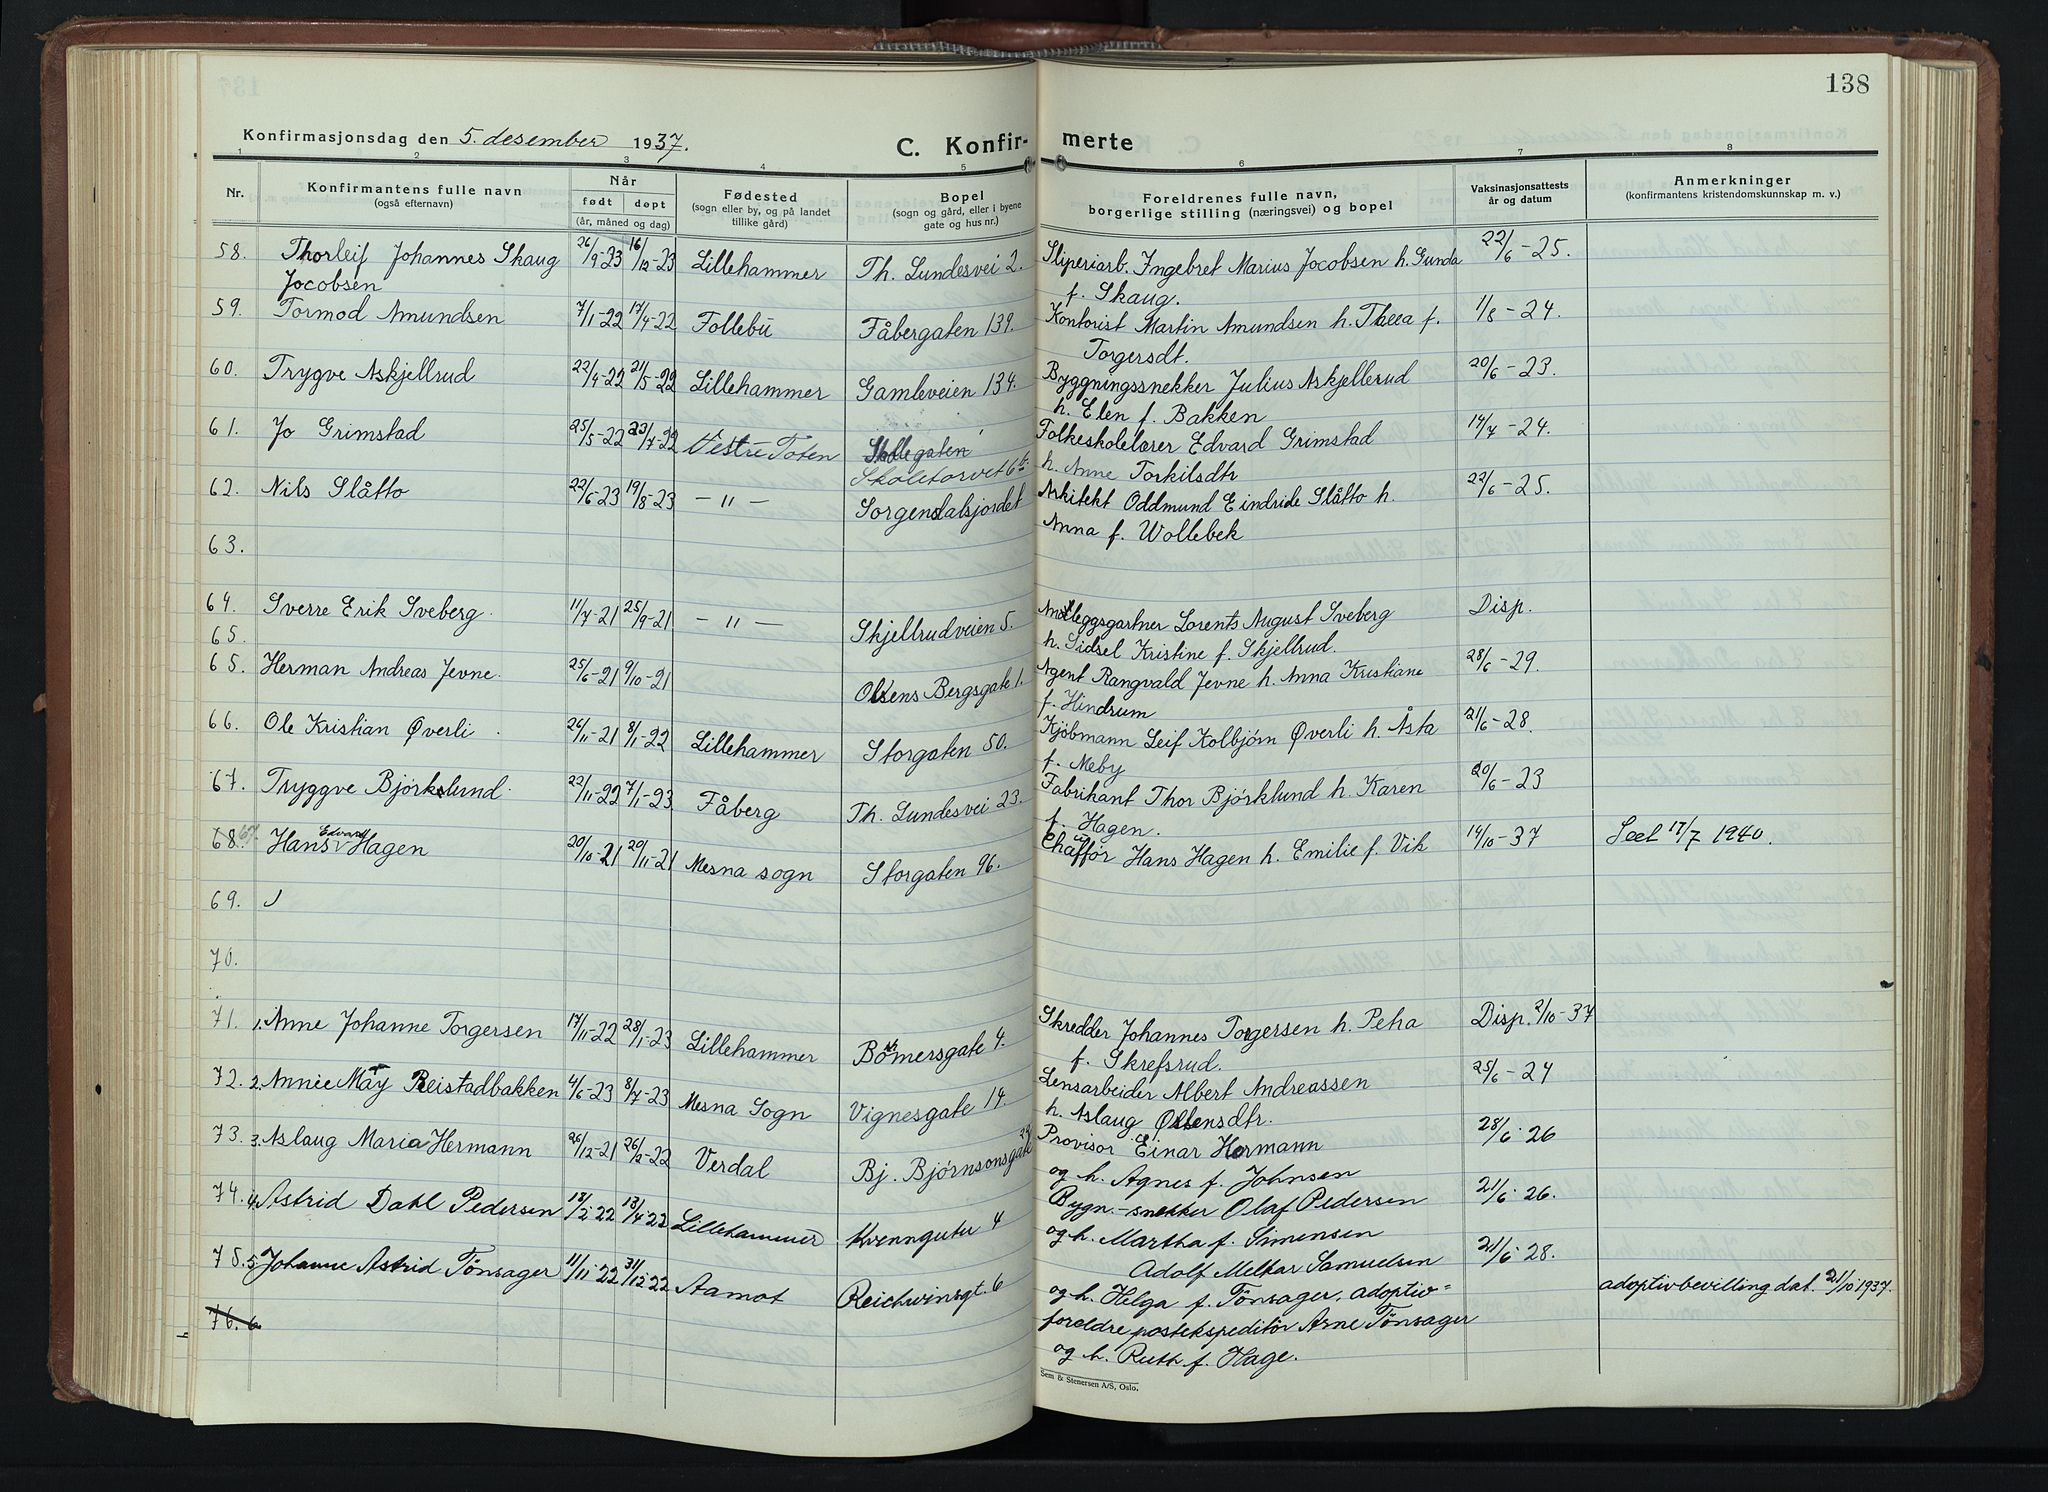 138
Konfirmasjonsdag den 5. desember 1937.
C. Konfir- merte
1 2 3 4 5 6 7 8
Nr. Konfirmantens fulle navn (også efternavn) Når født døpt (år, måned og dag) Fødested (sogn eller by, og på landet tillike gård) Bopel (sogn og gård, eller i byene gate og hus nr.) Foreldrenes fulle navn, borgerlige stilling (næringsvei) og bopel Vaksinasjonsattests år og datum Anmerkninger (konfirmantens kristendomskunnskap m. v.)
58. Thorleif Johannes Skaug 26/9-23 16/12-23 Lillehammer Th. Lundesvei 2. Sliperiarb. Ingebret Marius Jocobsen h. Gunda 22/6-25.
Jocobsen f. Skaug.
59. Tormod Amundsen 7/1-22 17/4-22 Follebu Fåbergaten 139. Kontorist Martin Amundsen h. Thea f. 1/8-24.
Torgersdt.
60. Trygve Askjellrud 22/4-22 21/5-22 Lillehammer Gamleveien 134. Byggningssnekker Julius Askjellerud 20/6-23.
h. Elen f. Bakken
61. Jo Grimstad 25/5-22 23/7-22 Vestre Toten Skolegaten Folkeskolelærer Edvard Grimstad 14/7-24.
Skoletorvet 6 b. h. Anne Torkilsdtr
62. Nils Slåtto 22/6-23 19/8-23 -"- Sorgendalsjordet Arkitekt Oddmund Eindride Slåtto h. 22/6-25.
Anna f. Wollebek
63.
64. Sverre Erik Sveberg. 11/7-21 25/9-21 -"- Skjellrudveien 5. Anleggsgartner Lorents August Sveberg Disp.
65. h. Sidsel Kristine f. Skjellrud.
65. Herman Andreas Jevne. 25/6-21 9/10-21 Olsens Bergsgate 1. Agent Rangvald Jevne h. Anna Kristiane 28/6-29.
f. Hindrum
66. Ole Kristian Øverli. 26/11-21 8/1-22 Lillehammer Storgaten 50. Kjøbmann Leif Kolbjørn Øverli h. Åsta 21/6-28.
f. Meby
67. Tryggve Bjørklund. 22/11-22 7/1-23 Fåberg Th. Lundesvei 23. Fabrikant Thor Bjørklund h. Karen 20/6-23
f. Hagen.
68. 67. Hans Edvard Hagen 20/10-21 20/11-21 Mesna sogn Storgaten 96. Chaffør Hans Hagen h. Emilie f. Vik 14/10-37 Seet 17/7 1940.
69.
70.
71. 1. Anne Johanne Torgersen 17/11-22 28/1-23 Lillehammer Bømersgate 4. Skredder Johannes Torgersen h. Peha Disp. 2/10-37
f. Skrefsrud.
72. 2. Annie May Reistadbakken 4/6-23 8/7-23 Mesna Sogn Vignesgate 14. Lensarbeider Albert Andreassen 25/6-24
h. Aslaug Østensdtr.
73. 3. Aslaug Maria Hermann 26/12-21 26/2-22 Verdal Bj. Bjørnsonsgate Provisor Einar Hermann 28/6-26
og h. Agnes f. Johnsen
74. 4. Astrid Dahl Pedersen 18/2-22 13/4-22 Lillehammer Kvenngutu 4 Bygn.-snekker Olaf Pedersen 21/6-26.
og h. Martha f. Simensen
75. 5. Johanne Astrid Tönsager 11/11-22 31/12-22 Aamot Reichwinsgt. 6 Adolf Melkar Samuelsen 21/6-28.
og h. Helga f. Tönsager, adoptiv= adoptivbevilling dat. 21/10 1937.
76. 6 foreldre postekspeditør Arne Tönsager
og h. Ruth f. Hage.
Sem & Stenersen A/S, Oslo.